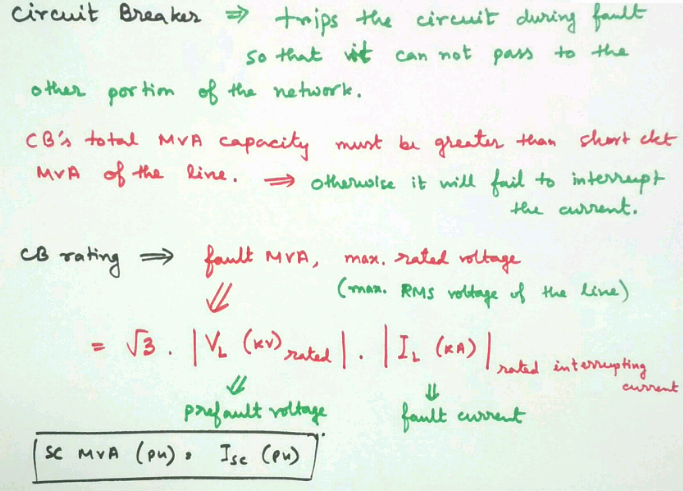 Circuit Breaker ⇒ trips the circuit during fault
so that it can not pass to the
other portion of the network.
CB's total MVA capacity must be greater than short ckt
MVA of the line. ⇒ otherwise it will fail to interrupt
the current.
CB rating ⇒ fault MVA, max. rated voltage
(max. RMS voltage of the line)
⇓
= √3 . |V_L (KV) rated| . |I_L (KA)| rated interrupting
current
⇓ ⇓
prefault voltage fault current
SC MVA (pu) = Isc (pu)